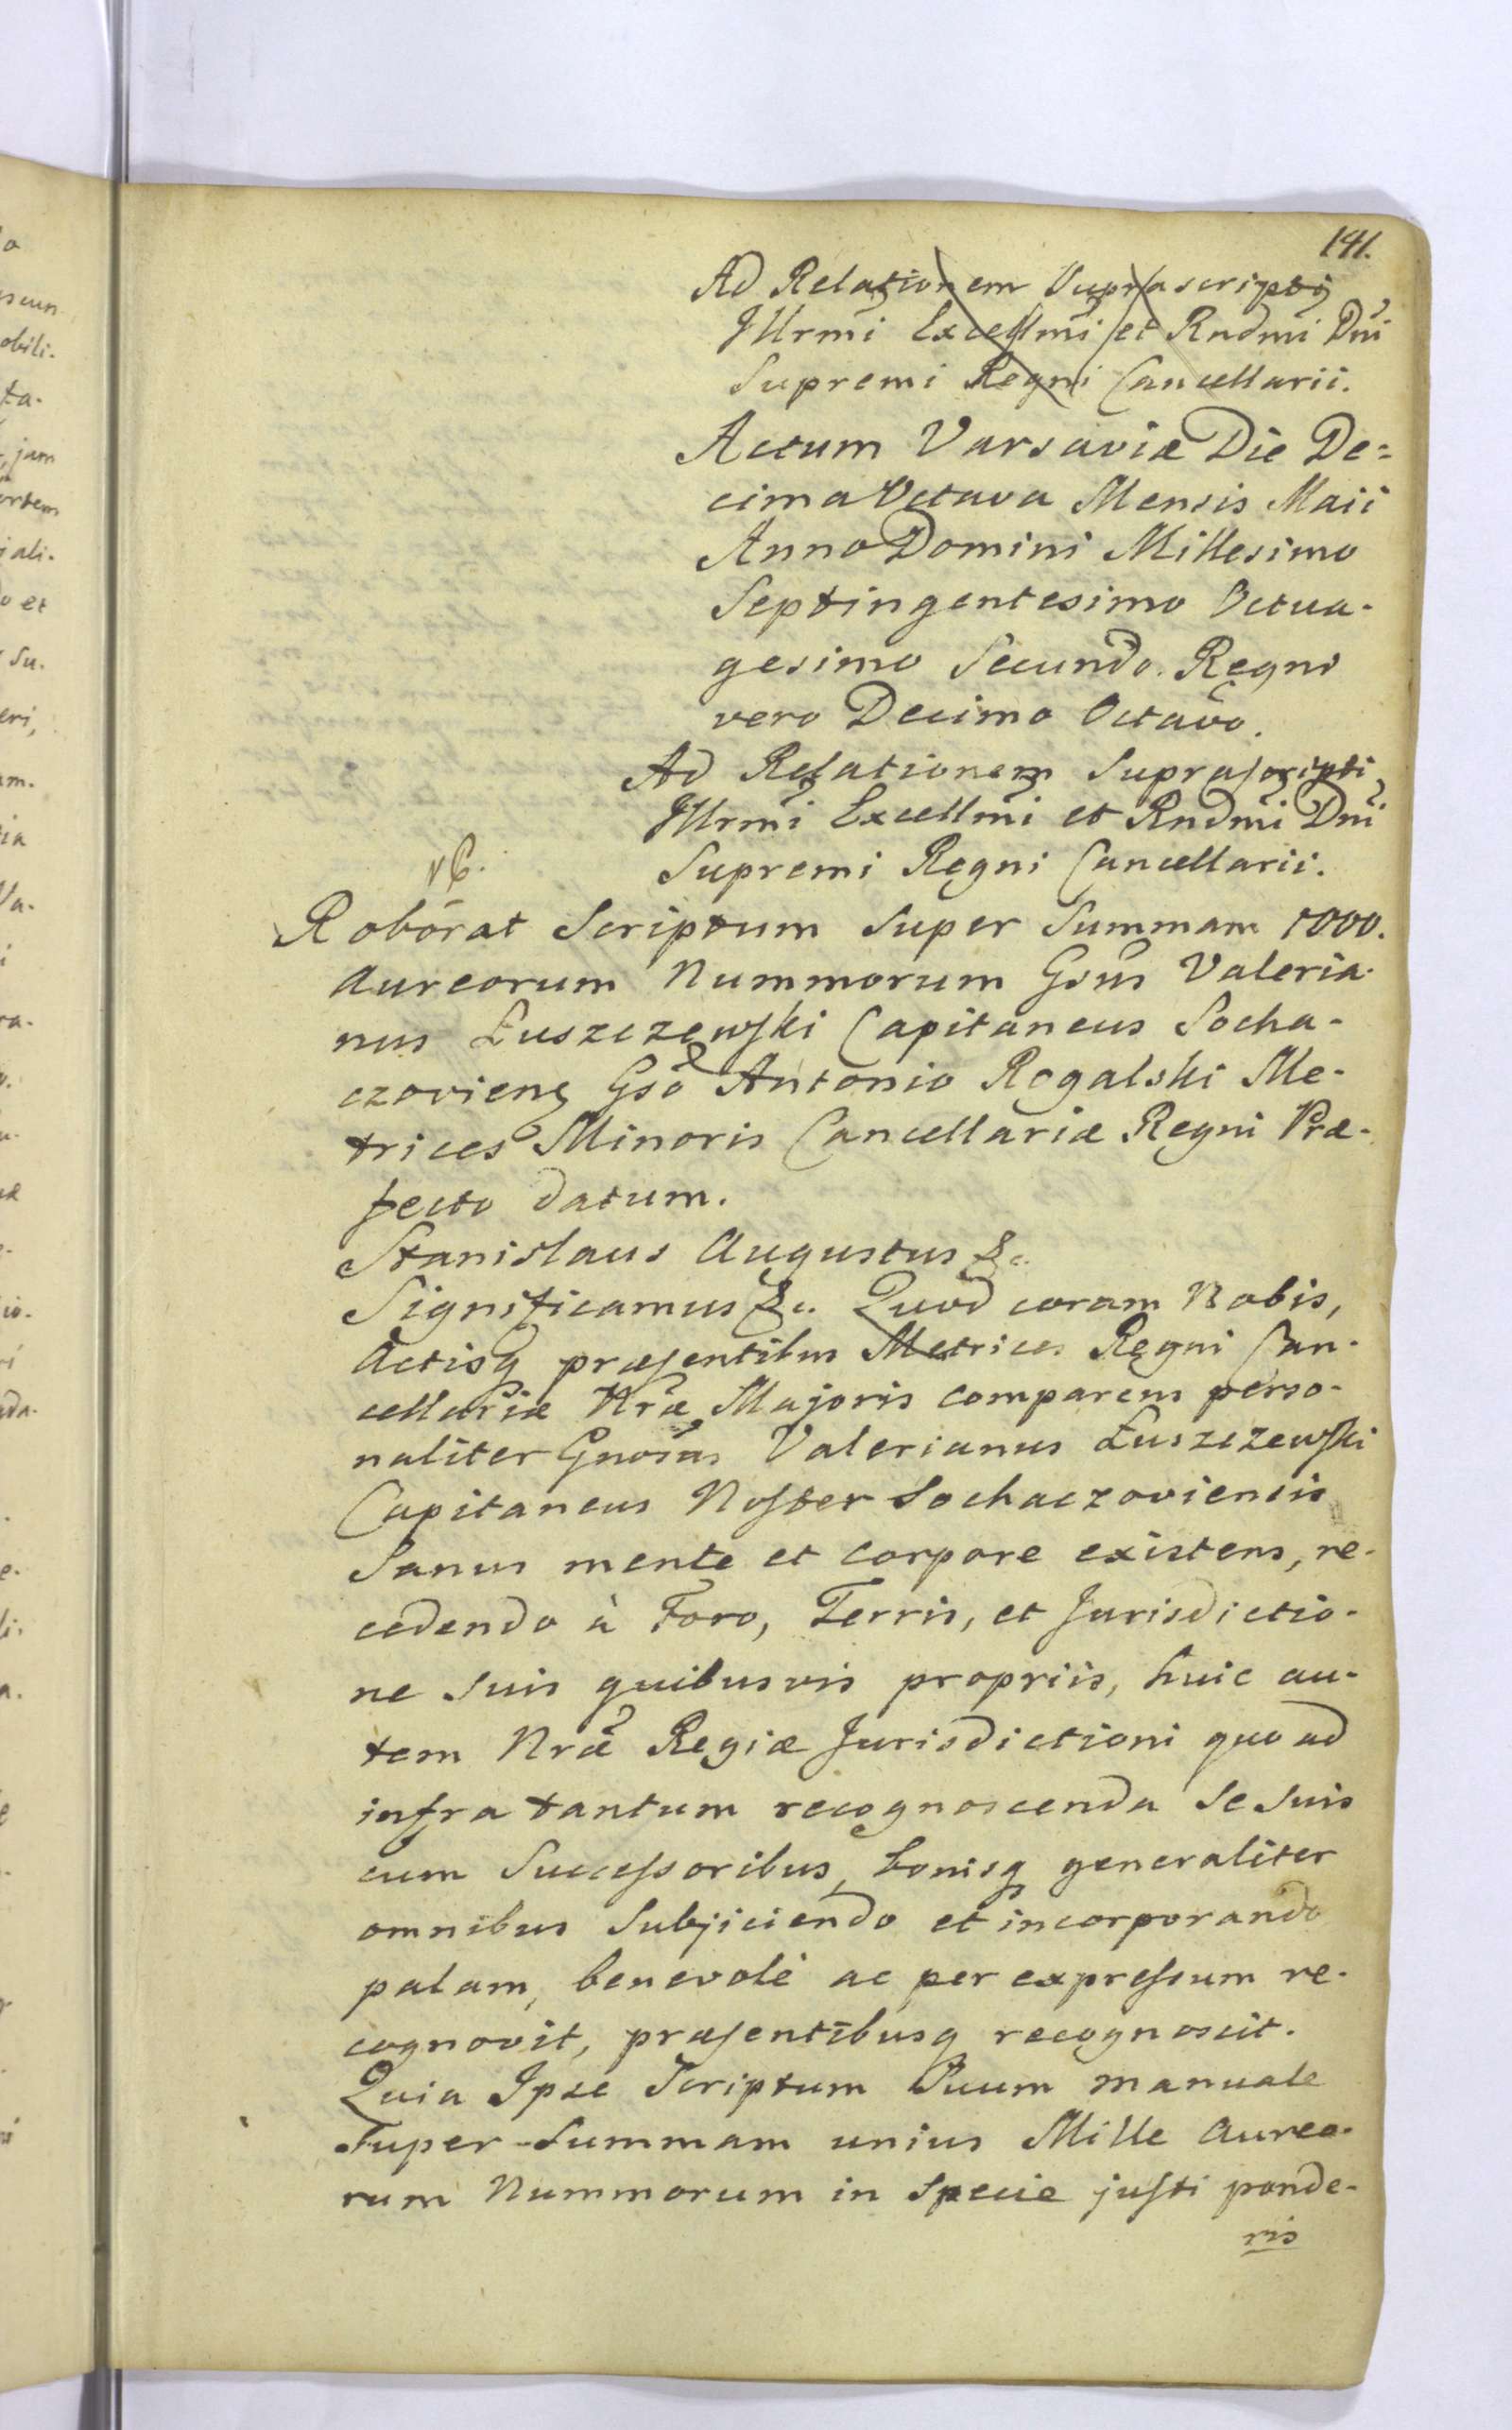 141.
Ad Relationem Suprascripti
Illrmi Excellmi et Rndmi Dni
Supremi Regni Cancellarii.
Actum Varsaviæ Die De=
cima Octava Mensis Maii
Anno Domini Millesimo
Septingentesimo Octua-
gesimo Secundo. Regni
vero Decimo Octavo.
Ad Relationem Suprascripti
Illrmi Excellmi et Rndmi Dni
Supremi Regni Cancellarii.
Roborat Scriptum Super Summam 1000.
Aureorum Nummorum Gsus Valeria-
nus Łuszczewski Capitaneus Socha-
czoviens Gso Antonio Rogalski Me-
trices Minoris Cancellariæ Regni Præ-
fecto datum.
Stanislaus Augustus &c.
Significamus &c. Quod coram Nobis,
Actisq præsentibus Metrices Regni Can-
cellariæ Nræ Majoris comparens perso-
naliter Gnosus Valerianus Łuszczewski
Capitaneus Noster Sochaczoviensis
Sanus mente et Corpore existens, re-
cedendo à Foro, Terris, et Jurisdictio-
ne Suis quibusvis propriis, huic au-
tem Nræ Regiæ Jurisdictioni quo ad
infra tantum recognoscenda Se Suis
cum Successoribus, bonisq generaliter
omnibus Subjiciendo et incorporando
palam, benevolè ac per expressum re-
cognovit, præsentibusq recognoscit.
Quia Ipse Scriptum Suum manuale
Super Summam unius Mille Aureo-
rum Nummorum in Specie justi ponde-
ris